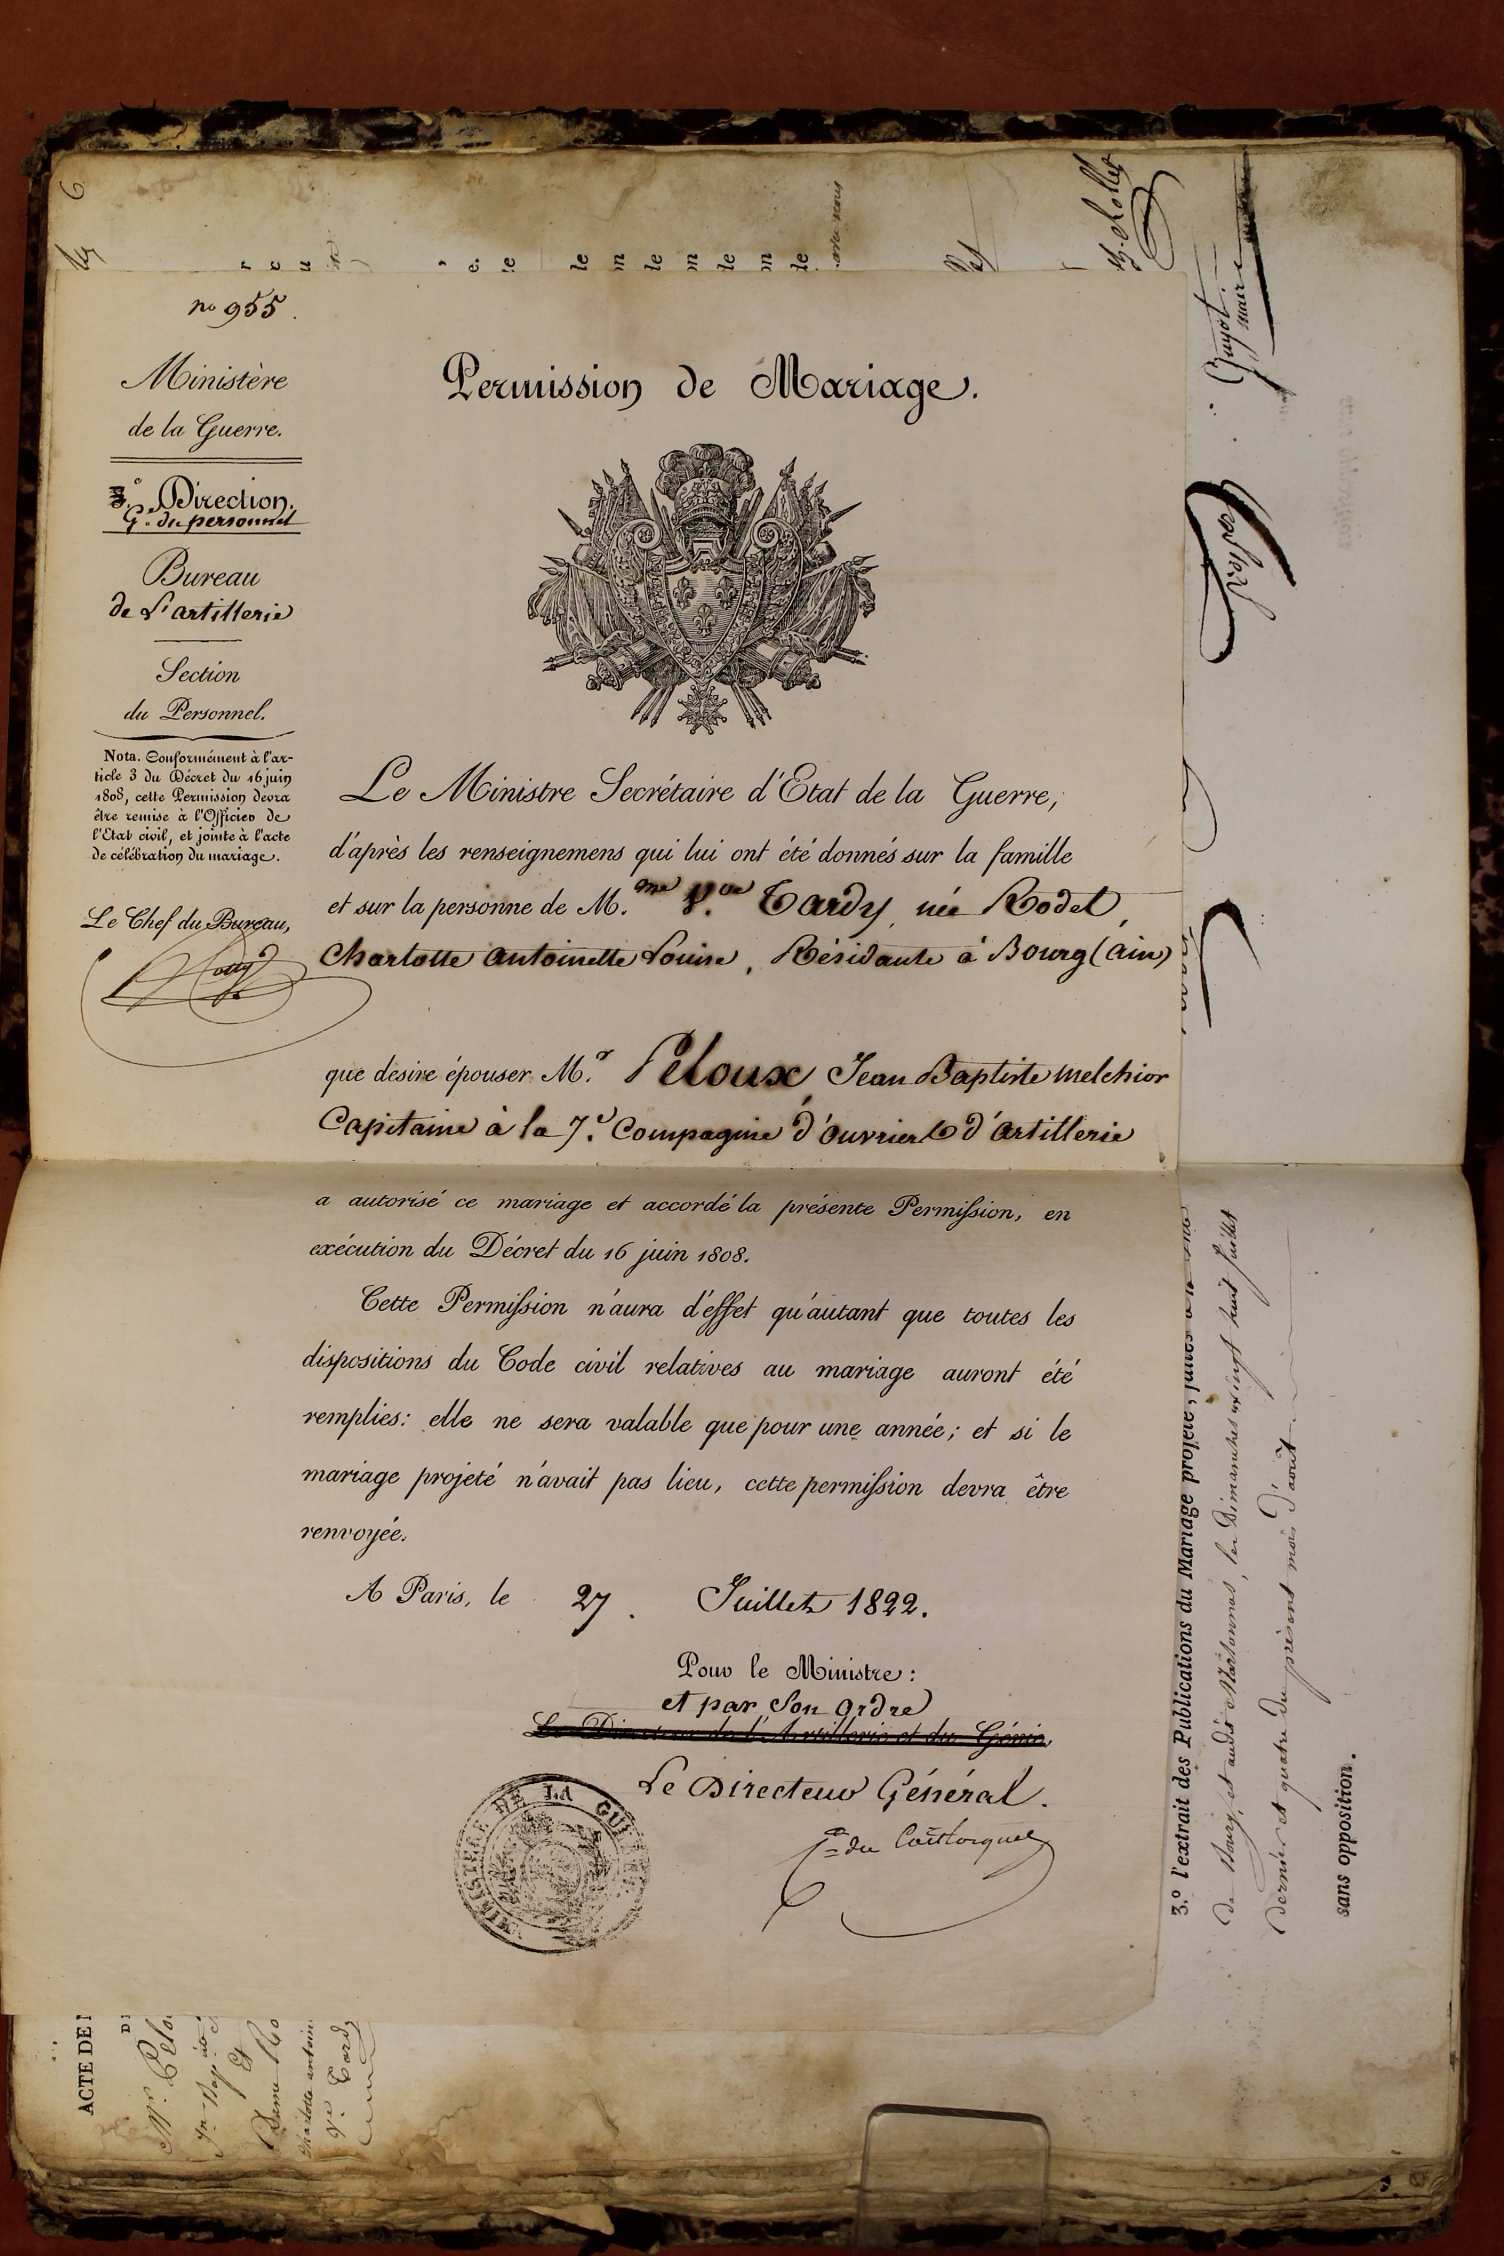 no 955.
Ministère
de la Guerre.
Direction.
Gle du personnel
Bureau
de L'artillerie
Section
du Personnel.
Nota. Conformément à l'ar-
ticle 3 du Décret du 16 juin
1808, cette Permission devra
être remise à l'Officier de
l'Etat civil, et jointe à l'acte
de célébration du mariage.
Le Chef du Bureau,
Permission de Mariage.
Le Ministre Secrétaire d'Etat de la Guerre,
d'après les renseignemens qui lui ont été donnés sur la famille
et sur la personne de M.me V.ve Tardy, née Rodet,
Charlotte Antoinette Louise, Résidante à Bourg (Ain)
que désire épouser M.r Peloux, Jean Baptiste Melchior
Capitaine à la 7.e Compagnie d'ouvriers d'Artillerie
a autorisé ce mariage et accordé la présente Permission, en
exécution du Décret du 16 juin 1808.
Cette Permission n'aura d'effet qu'autant que toutes les
dispositions du Code civil relatives au mariage auront été
remplies: elle ne sera valable que pour une année; et si le
mariage projeté n'avait pas lieu, cette permission devra être
renvoyée.
A Paris, le 27. Juillet 1822.
Pour le Ministre:
et par Son Ordre
Le Directeur de l'Artillerie et du Génie,
Le Directeur Général.
Cte du Coëtlosquet
MINISTÈRE DE LA GUERRE
Guyot
maire
3.o l'extrait des Publications du Mariage projeté, faites
de Bourg, et audit Marsonnas, les Dimanches vingt huit Juillet
dernier et quatre du présent mois d'août
sans opposition.
ACTE DE
Mr Pelou
Jn Bap
Et
Dame Ro
Charlotte antoin
Ve Tardy